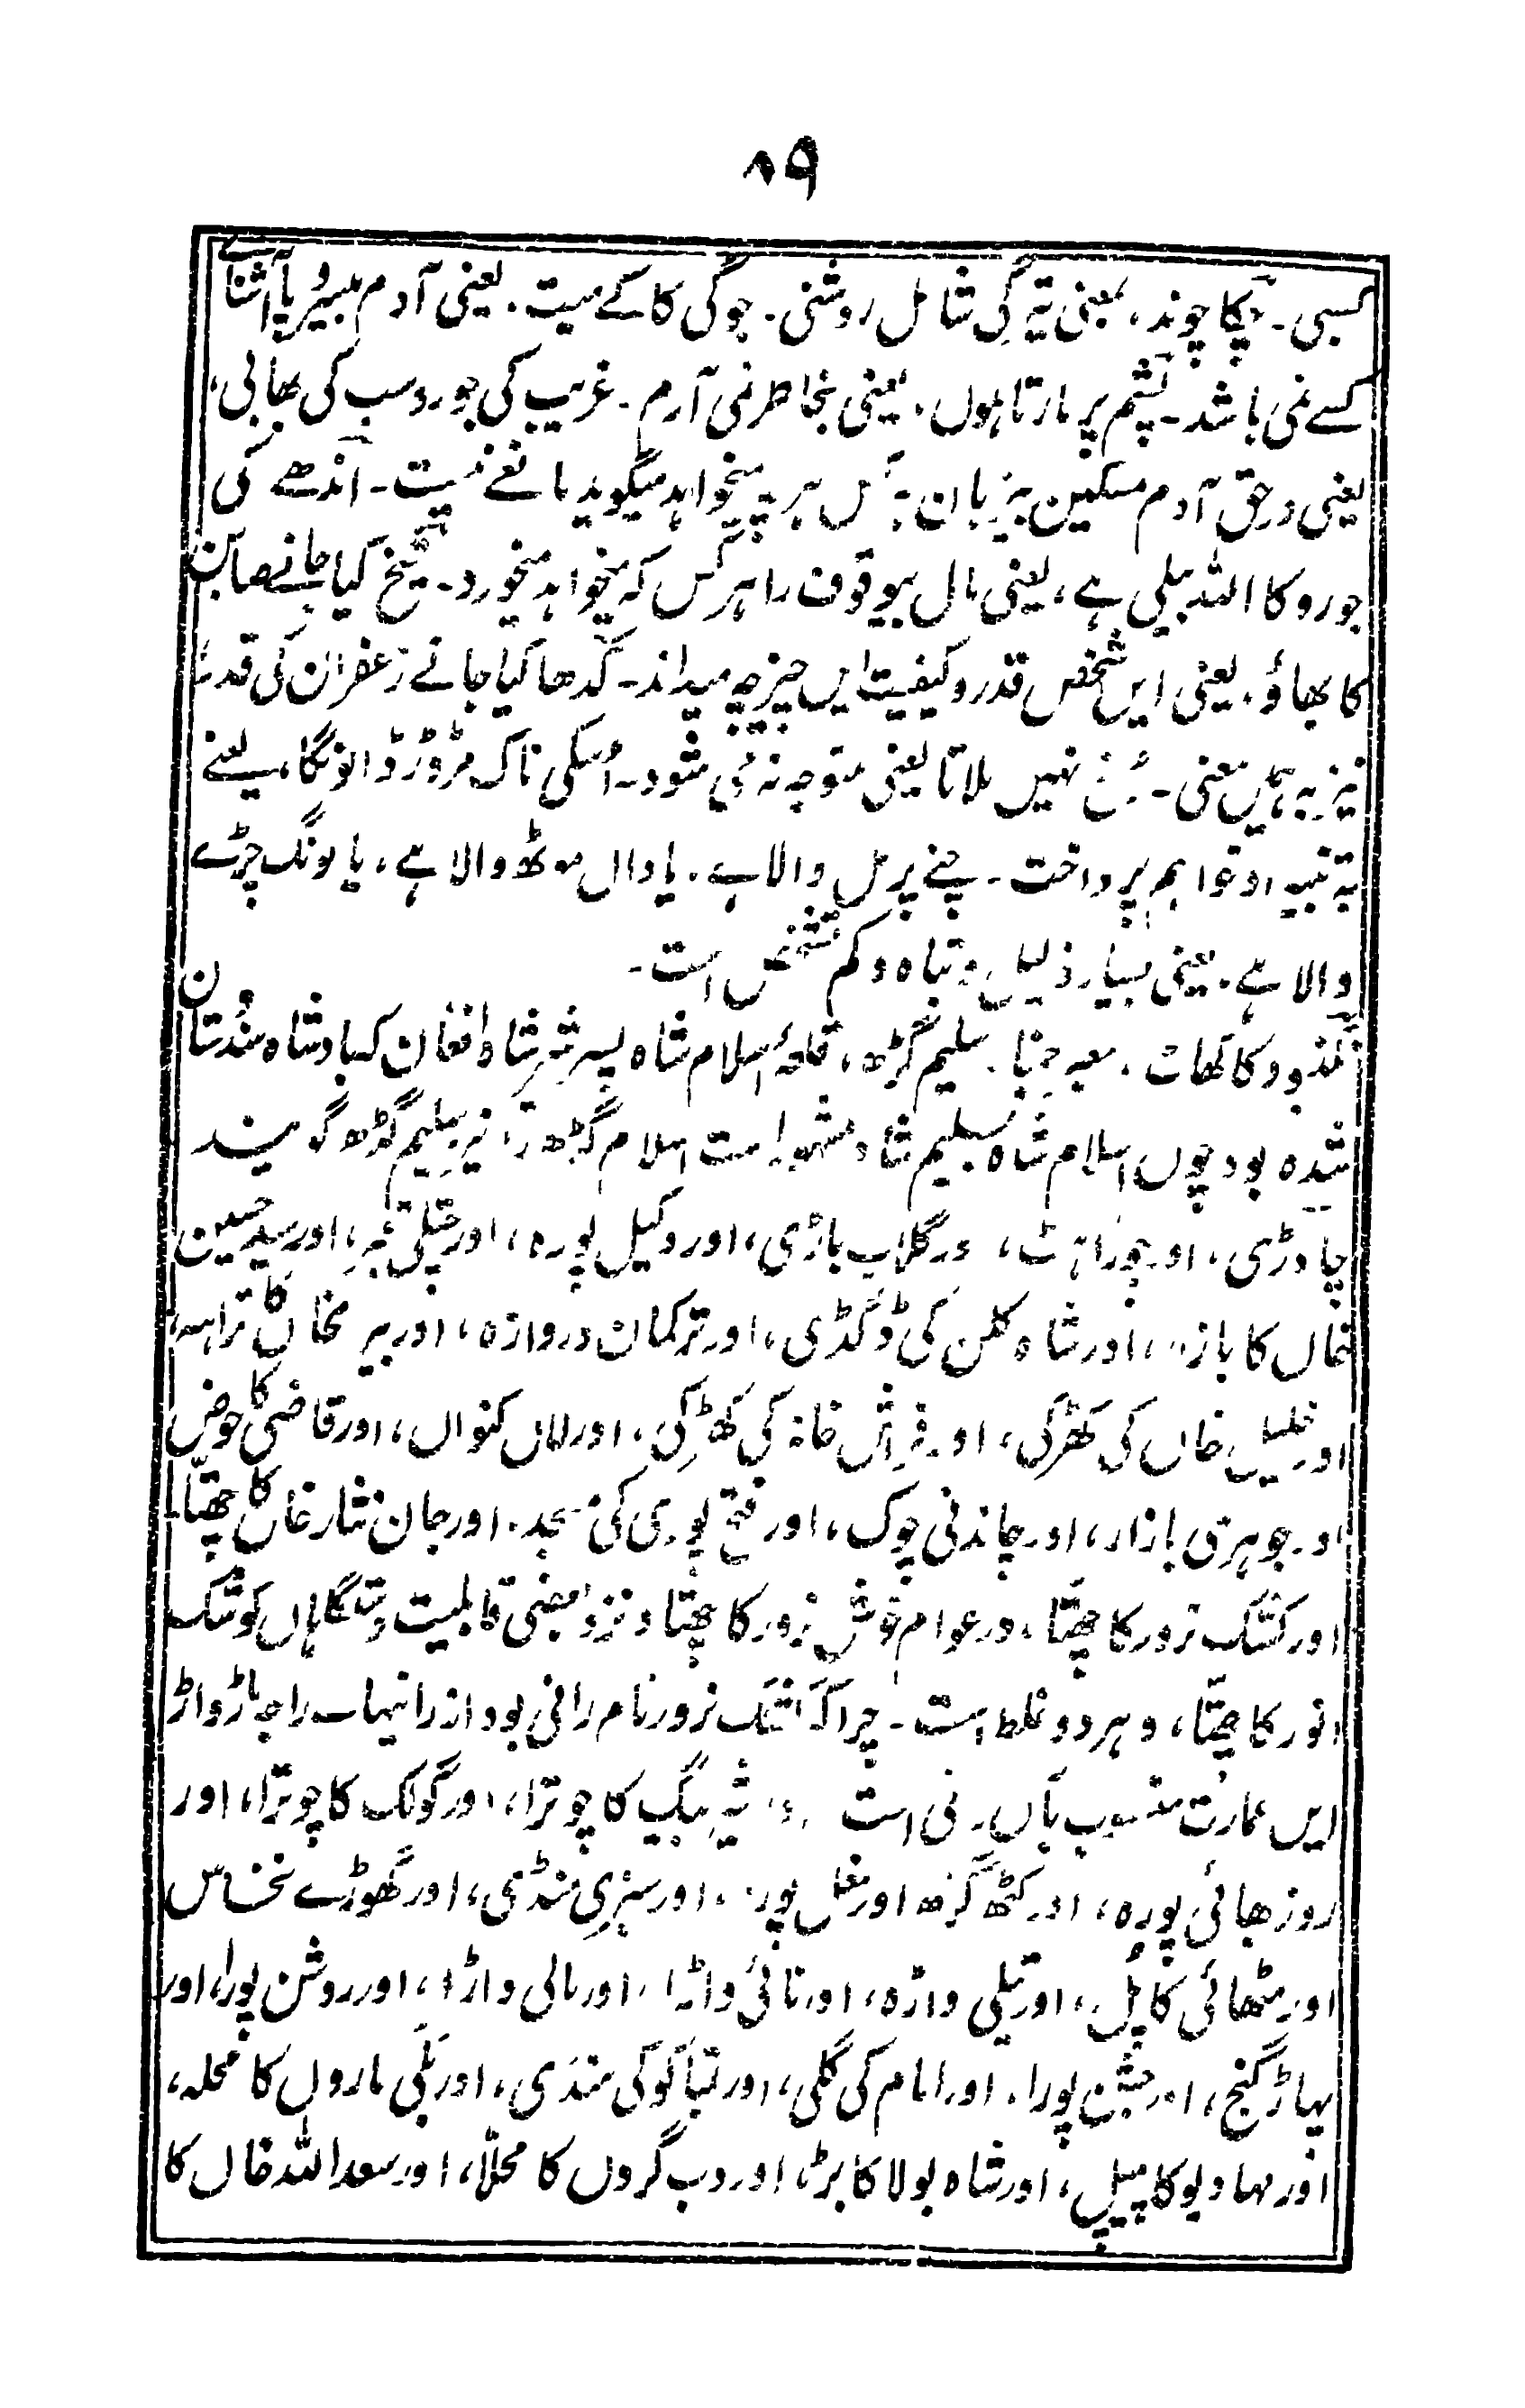 ۸۹
کسبی۔ چکا چوند، بمعنی تیرگی شامل روشنی۔ جوگی کا کے میت، یعنی آدم بیرو پا آشنائے
کسے نمی باشد۔ پشم پر مارتا ہوں، یعنی بخاطر نمی آرم۔ غریب کی جورو سب کی بھابی،
یعنی در حق آدم مسکین بزبان ہر کس ہر چہ میخواہد میگوید مانعے نیست۔ اندھے کی
جورو کا اللہ بیلی ہے، یعنی مال بیوقوف را ہر کس کہ میخواہد میخورد۔ شیخ کیا جانے صابن
کا بھاؤ، یعنی ایں شخص قدر و کیفیت ایں چیز چہ میداند۔ گدھا کیا جانے زعفران کی قدر،
نیز بہ ہمیں معنی۔ رخ نہیں ملاتا یعنی متوجہ نمی شود۔ اُسکی ناک مڑوڑ ڈالونگا، یعنے
بہ تنبیہ او خواہم پرداخت۔ چنے پرمل والا ہے، یا دال موٹھ والا ہے، یا مونگ چڑے
والا ہے، یعنی بسیار ذلیل و تباہ و کم تشخص است۔
کا گھاٹ، معبر جمنا۔ سلیم گڑھ، قلعۂ اسلام شاہ پسر شیر شاہ افغان کہ بادشاہ ہندستان
شدہ بود چوں اسلام شاہ بسلیم شاہ مشہور است اسلام گڑھ را نیز سلیم گڑھ گویند
چاوڑی، اور چوراہٹ، اور گلاب باڑی، اور وکیل پورہ، اور چتلی قبر، اور سید حسین
خاں کا بازار، اور شاہ کلن کی ڈگڈی، اور ترکمان دروازہ، اور بیرمخاں کا تراہہ،
اور خلیل خاں کی کھڑکی، اور فراش خانہ کی کھڑکی، اور لال کنواں، اور قاضی کا حوض
اور جوہری بازار، اور چاندنی چوک، اور فتح پوری کی مسجد، اور جان نثار خاں کا چھتّا
اور کشک نرور کا چھتّا، در عوام خوش نرور کا چھتّا و نزد بعضی قابلیت دستگاہاں کوشک
انور کا چھتّا، و ہر دو غلط است۔ چرا کہ کشک نرور نام رانی بود از رانیہاے راجہ باڑواڑ
ایں عمارت منسوب بآں رانی است اور شیر بیگ کا چوترا، اور گولک کا چوترا، اور
روز بھائی پورہ، اور کٹھ گڑھ اور مغل پورہ، اور سبزی منڈی، اور گھوڑے نخاس
اور مٹھائی کا پُل، اور تیلی واڑہ، اور نائی واڑا، اور مالی واڑا، اور روشن پورا، اور
پہاڑ گنج، اور جشن پورا، اور امام کی گلی، اور تباکو کی منڈی، اور بلّی ماروں کا محلہ،
اور مہادیو کا پیپل، اور شاہ بولا کا بڑ، اور دب گروں کا محلّا، اور سعد اللہ خاں کا